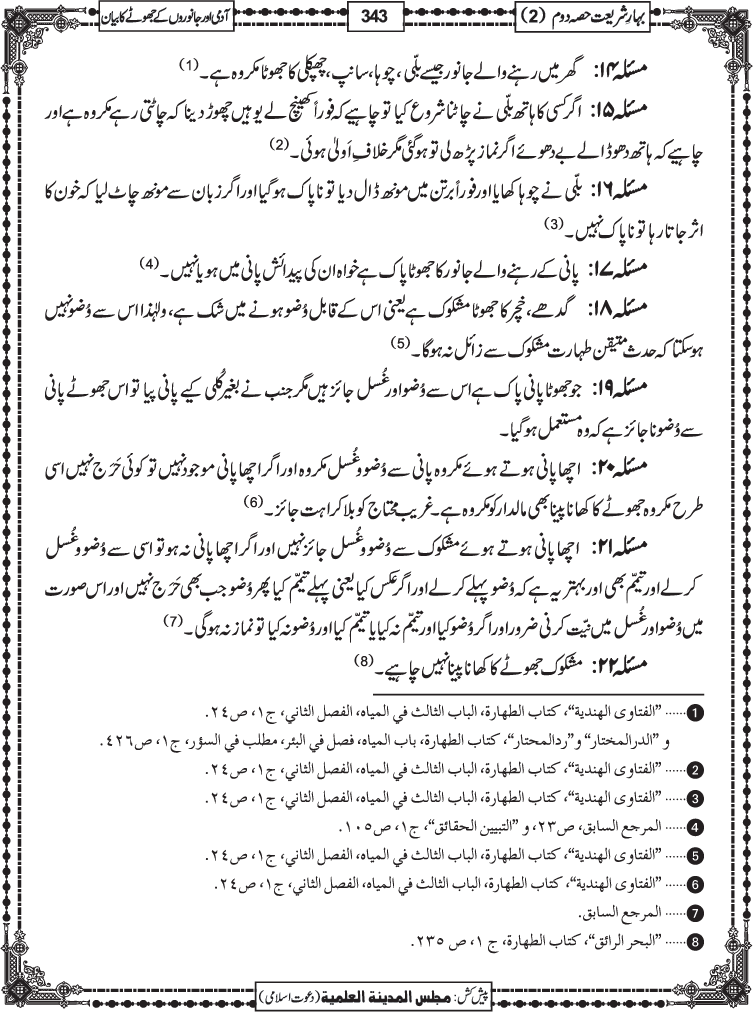 بہار شریعت حصہ دوم (2)
343
آدمی اور جانوروں کے جھوٹے کا بیان
مسئلہ ۱۴: گھر میں رہنے والے جانور جیسے بلّی ، چوہا، سانپ، چھپکلی کا جھوٹا مکروہ ہے۔(1)
مسئلہ ۱۵: اگر کسی کا ہاتھ بلّی نے چاٹنا شروع کیا تو چاہیے کہ فوراً کھینچ لے یوہیں چھوڑ دینا کہ چاٹتی رہے مکروہ ہے اور
چاہیے کہ ہاتھ دھو ڈالے بے دھوئے اگر نماز پڑھ لی تو ہوگئی مگر خلافِ اَولیٰ ہوئی۔(2)
مسئلہ ۱۶: بلّی نے چوہا کھایا اور فوراً برتن میں مونھ ڈال دیا تو ناپاک ہوگیا اور اگر زبان سے مونھ چاٹ لیا کہ خون کا
اثر جاتا رہا تو ناپاک نہیں۔(3)
مسئلہ ۱۷: پانی کے رہنے والے جانور کا جھوٹا پاک ہے خواہ ان کی پیدائش پانی میں ہو یا نہیں۔(4)
مسئلہ ۱۸: گدھے، خچر کا جھوٹا مشکوک ہے یعنی اس کے قابل وُضو ہونے میں شک ہے، ولہٰذا اس سے وُضو نہیں
ہوسکتا کہ حدث متیقن طہارت مشکوک سے زائل نہ ہوگا۔(5)
مسئلہ ۱۹: جو جھوٹا پانی پاک ہے اس سے وُضو اور غُسل جائز ہیں مگر جنب نے بغیر کُلی کیے پانی پیا تو اس جھوٹے پانی
سے وُضو ناجائز ہے کہ وہ مستعمل ہوگیا۔
مسئلہ ۲۰: اچھا پانی ہوتے ہوئے مکروہ پانی سے وُضو و غُسل مکروہ اور اگر اچھا پانی موجود نہیں تو کوئی حَرَج نہیں اسی
طرح مکروہ جھوٹے کا کھانا پینا بھی مالدار کو مکروہ ہے۔ غریب محتاج کو بلا کراہت جائز۔(6)
مسئلہ ۲۱: اچھا پانی ہوتے ہوئے مشکوک سے وُضو و غُسل جائز نہیں اور اگر اچھا پانی نہ ہو تو اسی سے وُضو و غُسل
کرلے اور تیمّم بھی اور بہتر یہ ہے کہ وُضو پہلے کرلے اور اگر عکس کیا یعنی پہلے تیمّم کیا پھر وُضو جب بھی حَرَج نہیں اور اس صورت
میں وُضو اور غُسل میں نیّت کرنی ضرور اور اگر وُضو کیا اور تیمّم نہ کیا یا تیمّم کیا اور وُضو نہ کیا تو نماز نہ ہوگی۔(7)
مسئلہ ۲۲: مشکوک جھوٹے کا کھانا پینا نہیں چاہیے۔(8)
1 ...... ”الفتاوی الھندیة“، کتاب الطھارة، الباب الثالث في المیاہ، الفصل الثاني، ج۱، ص۲٤.
و ”الدرالمختار“ و ”ردالمحتار“، کتاب الطھارة، باب المیاہ، فصل في البئر، مطلب في السؤر، ج۱، ص٤۲٦.
2 ...... ”الفتاوی الھندیة“، کتاب الطھارة، الباب الثالث في المیاہ، الفصل الثاني، ج۱، ص۲٤.
3 ...... ”الفتاوی الھندیة“، کتاب الطھارة، الباب الثالث في المیاہ، الفصل الثاني، ج۱، ص۲٤.
4 ...... المرجع السابق، ص۲۳، و ”التبیین الحقائق“، ج۱، ص۱۰٥.
5 ...... ”الفتاوی الھندیة“، کتاب الطھارة، الباب الثالث في المیاہ، الفصل الثاني، ج۱، ص۲٤.
6 ...... ”الفتاوی الھندیة“، کتاب الطھارة، الباب الثالث في المیاہ، الفصل الثاني، ج۱، ص۲٤.
7 ...... المرجع السابق.
8 ...... ”البحر الرائق“، کتاب الطھارة، ج ۱، ص ۲۳٥.
پیش کش: مجلس المدینة العلمیة (دعوت اسلامی)